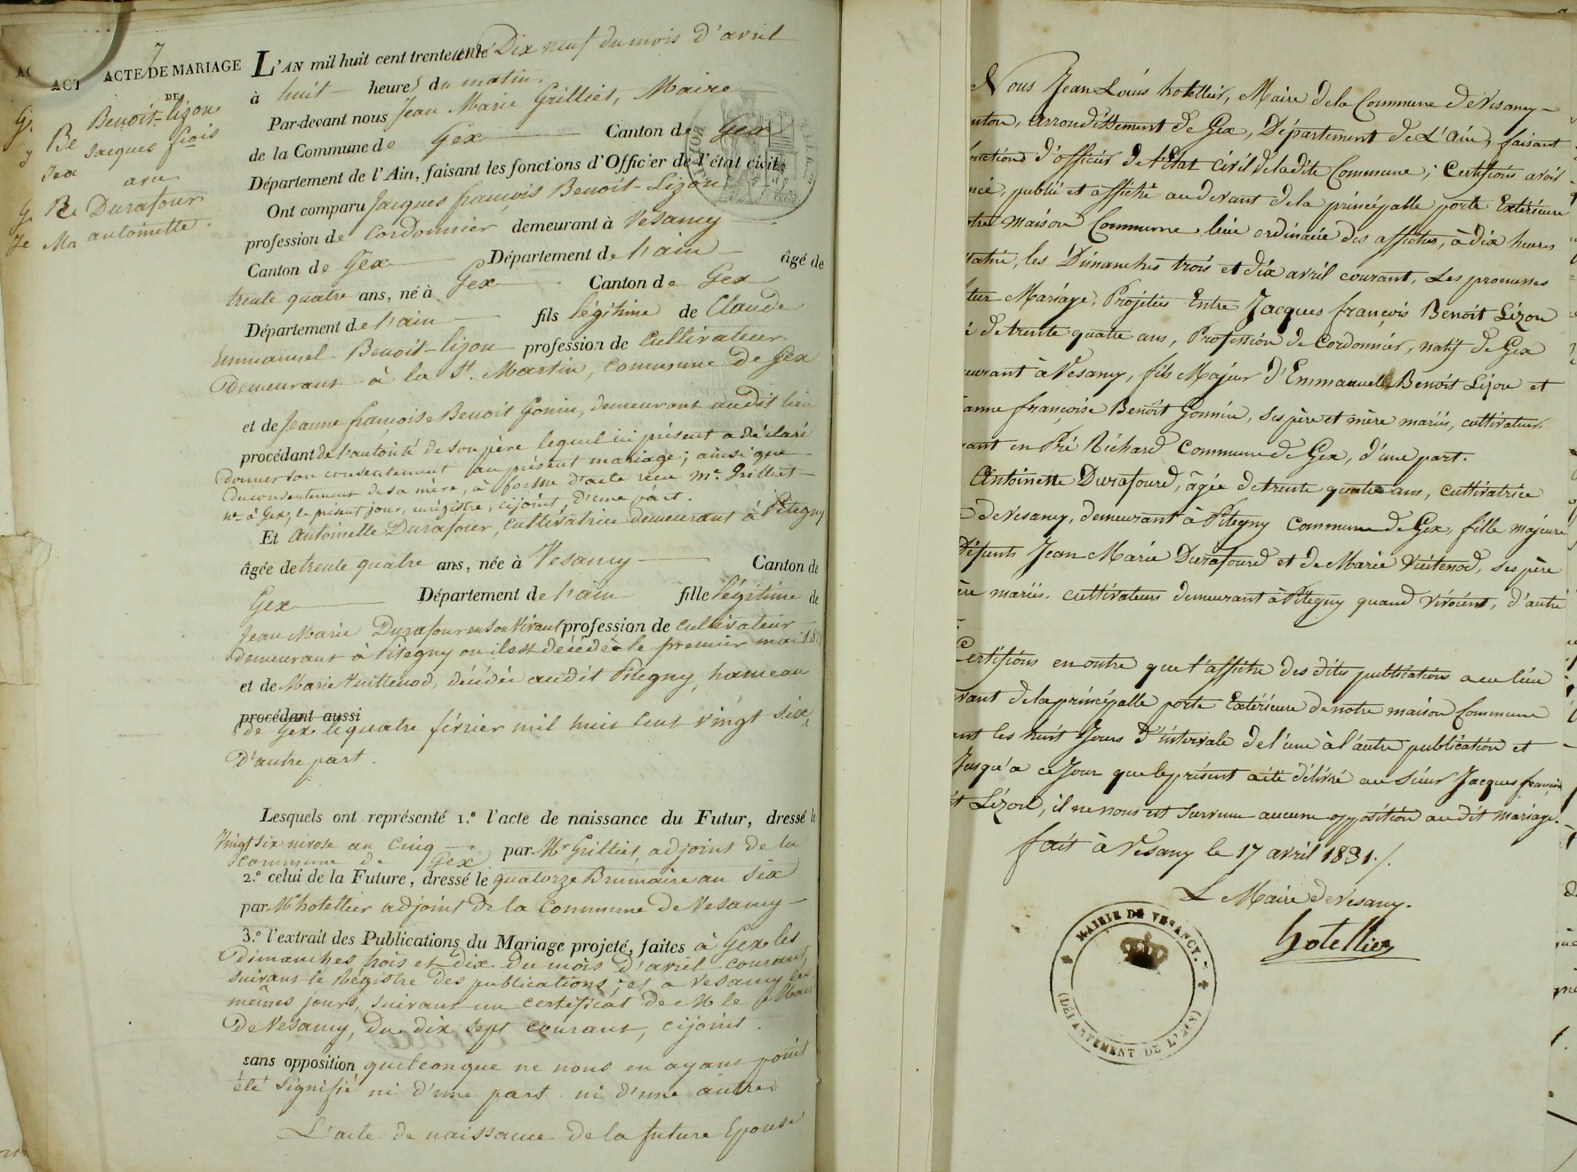 7
ACTE DE MARIAGE
DE
Benoit-lizon
Jacques fcois
avec
Durafour
antoinette.
L'AN mil huit cent trente un le Dix neuf du mois d'avril
à huit heures du matin.
Par-devant nous Jean Marie Grilliet, Maire
de la Commune de Gex Canton de Gex
Département de l'Ain, faisant les fonctions d'Officier de l'état civil;
Ont comparu Jacques françois Benoit-Lizon
profession de Cordonnier demeurant à Vesancy
Canton de Gex Département de l'ain âgé de
trente quatre ans, né à Gex Canton de Gex
Département de l'ain fils légitime de Claude
Emmanuel Benoit-lizon profession de Cultivateur
Demeurant à la St. Martin, Commune de Gex
et de Jeanne françoise Benoit Gonin, demeurant audit lieu
procédant de l'autorité de son père lequel ici présent a déclaré
donner son consentement au présent mariage; ainsi que
du consentement de sa mère, à forme d'acte reçu Me. Grilliet
nre à Gex, le présent jour, enrégistré, cijoint, D'une part.
Et Antoinette Durafour, Cultivatrice demeurant à Pitegny
âgée de trente quatre ans, née à Vesancy Canton de
Gex Département de l'ain fille légitime de
Jean Marie Durafour en son vivant profession de Cultivateur
demeurant à Pitegny ou il est décédé le premier mai
et de Marie Vuittenod, décédée audit Pitegny, hameau
procédant aussi
de Gex le quatre février mil huit cent vingt six,
D'autre part.
Lesquels ont représenté 1.º l'acte de naissance du Futur, dressé le
Vingt six nivose an Cinq par Mr Grilliet, adjoint de la
Commune de Gex
2.º celui de la Future, dressé le quatorze Brumaire an six
par M hotellier adjoint de la Commune de Vesancy
3.º l'extrait des Publications du Mariage projeté, faites à Gex les
dimanches trois et dix du mois d'avril courant,
suivant le Régistre des publications; et à Vesancy les
mêmes jours, suivant un certificat de M le Maire
De Vesancy, du dix sept courant, cijoint.
sans opposition quelconque ne nous en ayant point
été signifié ni d'une part ni d'une autre
L'acte de naissance de la future Epouse
Nous Jean Louis hotellier, Maire de la Commune de Vesancy
anton, arrondissement de Gex, Département de L'Ain, faisant
fonctions d'officier de l'Etat civil de la dite Commune; Certifions avoir
ncé, publié et affiché au devant de la principalle porte Extérieure
otre maison Commune, lieu ordinaire des affiches, à dix heures
matin, les Dimanches trois et dix avril courant, Les promesses
futur Mariage, Projetés Entre Jacques françois Benoit Lizon
é de trente quatre ans, Profession de Cordonnier, natif de Gex
eurant à Vesancy, fils Majeur d'Emmanuel Benoit Lizon et
anne françoise Benoit Gonnin, ses père et mère mariés, cultivateurs
rant en Pré Richard Commune de Gex, d'une part.
Antoinette Durafourd, âgée de trente quatre ans, cultivatrice
de Vesancy, demeurant à Pitegny Commune de Gex, fille majeure
Défunts Jean Marie Durafourd et de Marie Vuitenod, ses père
ère mariés, cultivateurs demeurant à Pitegny quand vivoient, d'autre
Certifions en outre que l'affiche des dites publications a eu lieu
vant de la principalle porte Extérieure de notre maison Commune
ant les huit Jours d'intervale de l'une à l'autre publication et
Jusqu'a ce Jour que le présent a été délivré au sieur Jacques françois
it Lizon, il ne nous est survenu aucune opposition audit mariage.
fait à Vesancy le 17 avril 1831./.
Le Maire de Vesancy.
hotellier
MAIRIE DE VESANCY.
(DEPARTEMENT DE L'AIN)